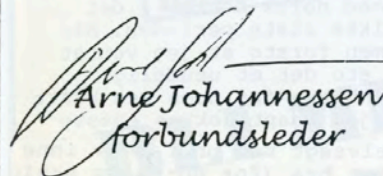 Arne Johannessen
forbundsleder